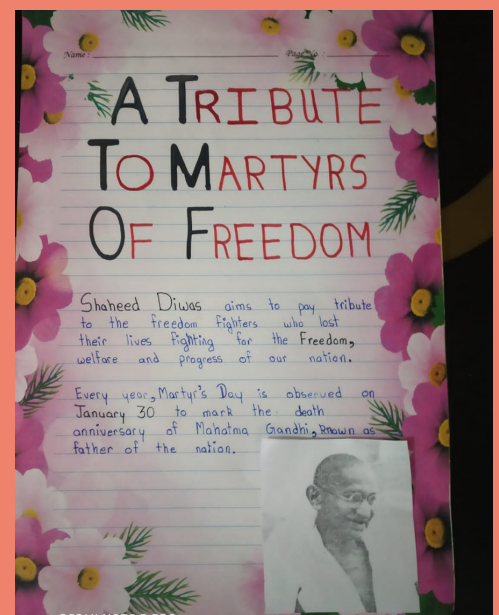 Name :
Page No. :
A TRIBUTE
TO MARTYRS
OF FREEDOM
Shaheed Diwas aims to pay tribute
to the freedom fighters who lost
their lives fighting for the Freedom,
welfare and progress of our nation.
Every year, Martyr's Day is observed on
January 30 to mark the death
anniversary of Mahatma Gandhi, known as
father of the nation.